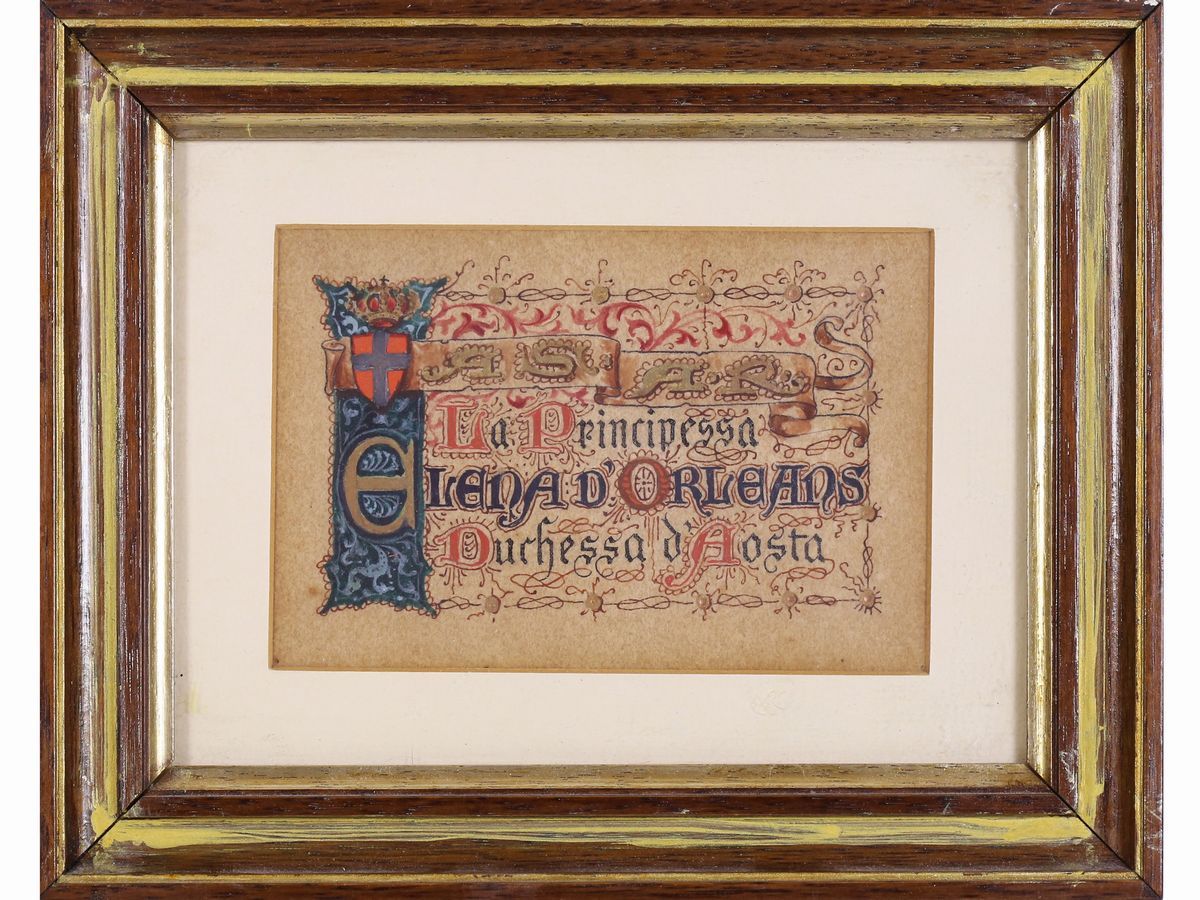 A S. A. R.
La Principessa
Elena d'Orleans
Duchessa d'Aosta